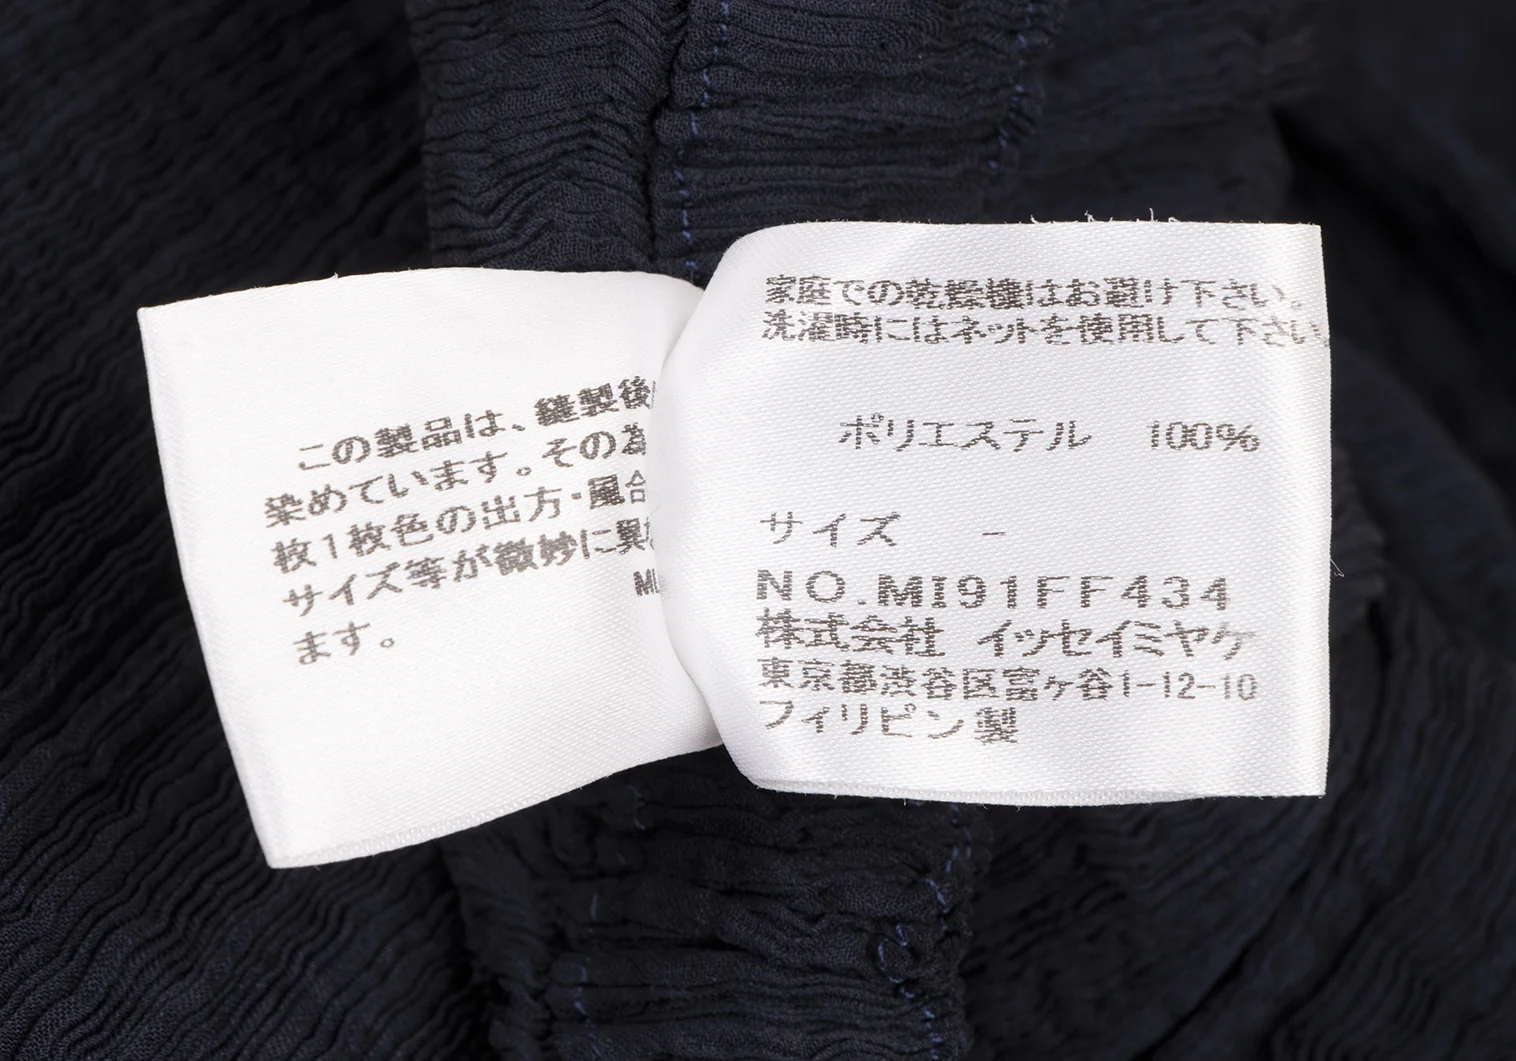 この製品は、縫製後
染めています。その為
枚1枚色の出方・風合
サイズ等が微妙に異
ます。
家庭での乾燥機はお避け下さい。
洗濯時にはネットを使用して下さい
ポリエステル 100%
サイズ -
NO.MI91FF434
株式会社 イッセイミヤケ
東京都渋谷区富ヶ谷1-12-10
フィリピン製